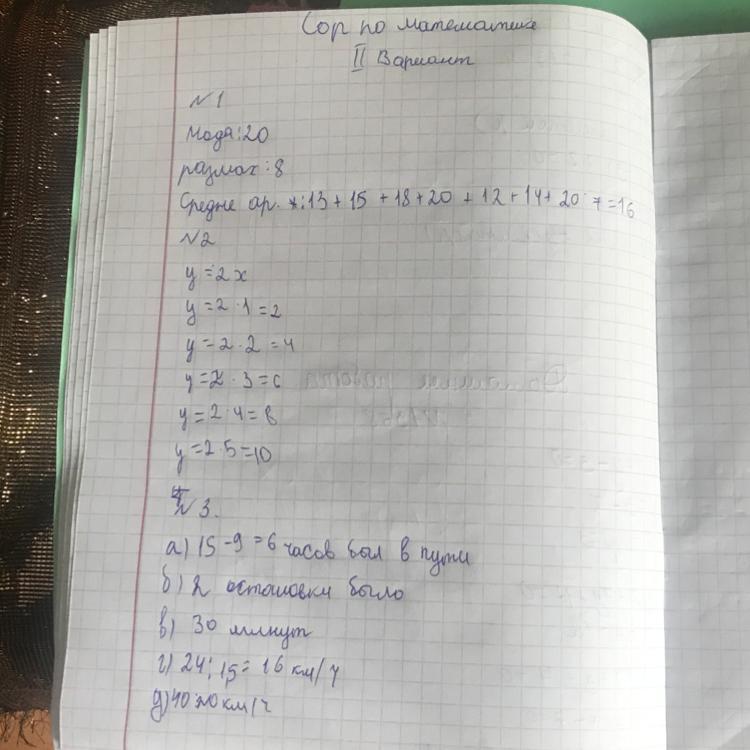 Сор по математике
II Вариант
№1
Мода: 20
размах: 8
Средне ар. : 13 + 15 + 18 + 20 + 12 + 14 + 20 : 7 = 16
№2
y = 2x
y = 2 · 1 = 2
y = 2 · 2 = 4
y = 2 · 3 = 6
y = 2 · 4 = 8
y = 2 · 5 = 10
№3.
а) 15 - 9 = 6 часов был в пути
б) 2 остановки было
в) 30 минут
г) 24 : 1,5 = 16 км/ч